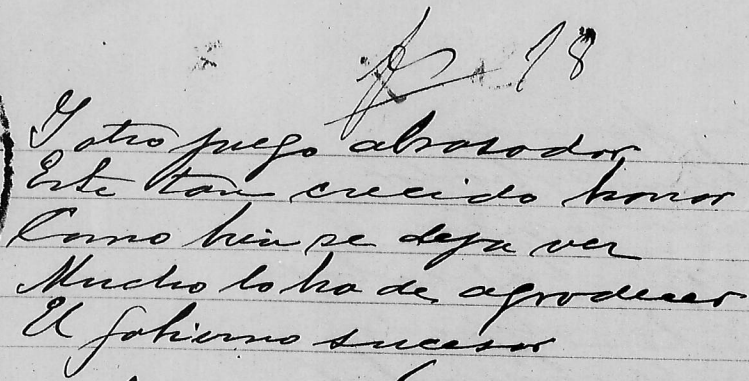 18
Y otro fuego abrasador
Este tan crecido honor
Como bien se deja ver
Mucho lo ha de agradecer
El gobierno sucesor